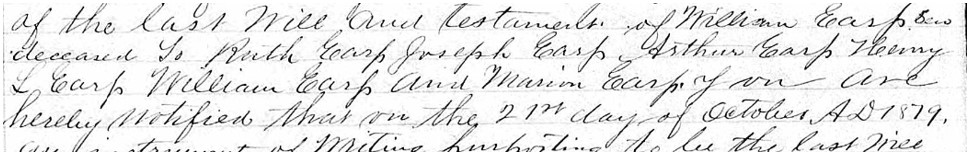 of the last Will and testament of William Earp Sen
deceased To Ruth Earp Joseph Earp, Arthur Earp Henry
L Earp William Earp and Marion Earp. You are
hereby notified that on the 21st day of October, A.D 1879.
an instrument of Writing purporting to be the last Will